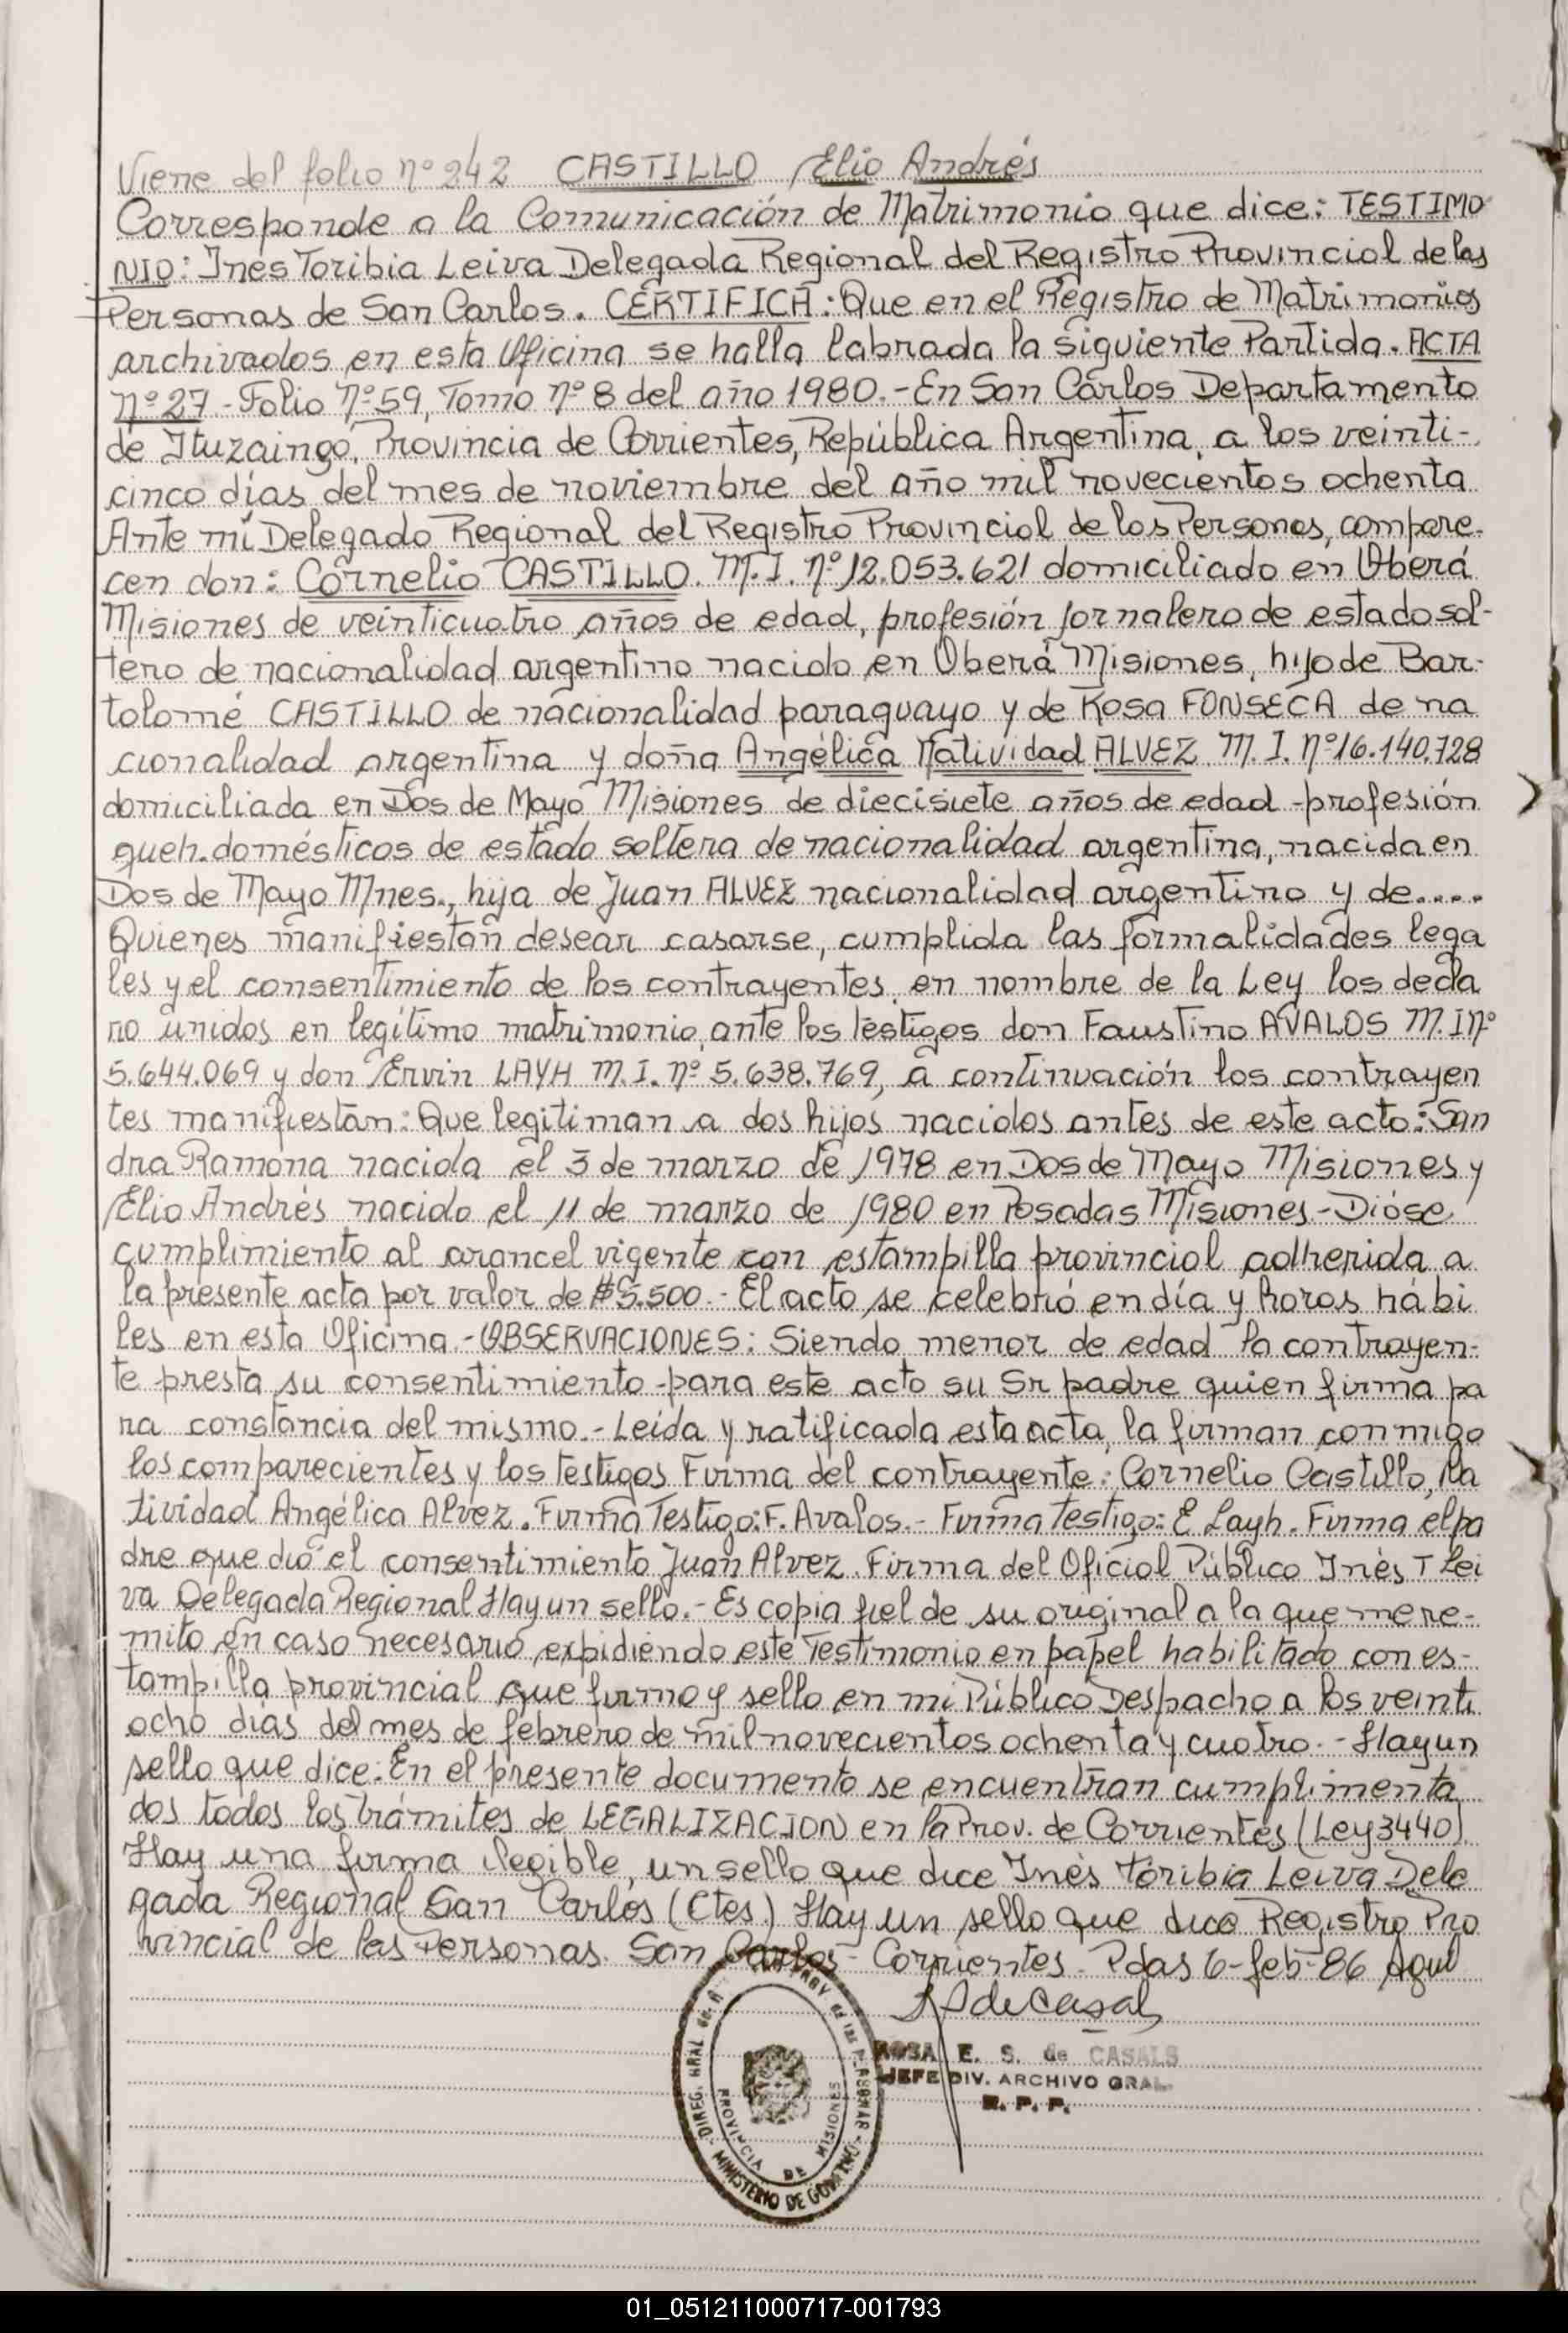 Viene del folio nº 242 CASTILLO Elio Andrés
Corresponde a la Comunicación de Matrimonio que dice: TESTIMO
NIO: Inés Toribia Leiva Delegada Regional del Registro Provincial de las
Personas de San Carlos. CERTIFICA: Que en el Registro de Matrimonios
archivados en esta Oficina se halla labrada la siguiente Partida. ACTA
nº 27 - Folio nº 59, Tomo nº 8 del año 1980. - En San Carlos Departamento
de Ituzaingo, Provincia de Corrientes, República Argentina, a los veinti-
cinco días del mes de noviembre del año mil novecientos ochenta
Ante mí Delegado Regional del Registro Provincial de las Personas, compare-
cen don: Cornelio CASTILLO. M.I. nº 12.053.621 domiciliado en Oberá
Misiones de veinticuatro años de edad, profesión jornalero de estado sol-
tero de nacionalidad argentino nacido en Oberá Misiones, hijo de Bar-
tolomé CASTILLO de nacionalidad paraguayo y de Rosa FONSECA de na
cionalidad argentina y doña Angélica Natividad ALVEZ M.I. nº 16.140.728
domiciliada en Dos de Mayo Misiones de diecisiete años de edad - profesión
queh. domésticos de estado soltera de nacionalidad argentina, nacida en
Dos de Mayo Mnes., hija de Juan ALVEZ nacionalidad argentino y de.....
Quienes manifiestan desear casarse, cumplida las formalidades lega
les y el consentimiento de los contrayentes, en nombre de la Ley los decla
ro unidos en legítimo matrimonio, ante los testigos don Faustino AVALOS M.I nº
5.644.069 y don Ervin LAYH M.I. nº 5.638.769, a continuación los contrayen
tes manifiestan: Que legitiman a dos hijos nacidos antes de este acto: San
dra Ramona nacida el 3 de marzo de 1978 en Dos de Mayo Misiones y
Elio Andrés nacido el 11 de marzo de 1980 en Posadas Misiones - Dióse
cumplimiento al arancel vigente con estampilla provincial adherida a
la presente acta por valor de $5.500. - El acto se celebró en día y horas hábi
les en esta Oficina. - OBSERVACIONES: Siendo menor de edad la contrayen-
te presta su consentimiento - para este acto su Sr padre quien firma pa
ra constancia del mismo. - Leída y ratificada esta acta, la firman conmigo
los comparecientes y los testigos Firma del contrayente: Cornelio Castillo, Na
tividad Angélica Alvez. Firma Testigo: F. Avalos. - Firma Testigo: E Layh. Firma el pa
dre que dio el consentimiento Juan Alvez. Firma del Oficial Público Inés T Lei
va Delegada Regional Hay un sello. - Es copia fiel de su original a la que me re-
mito en caso necesario expidiendo este Testimonio en papel habilitado con es-
tampilla provincial que firmo y sello en mi Público Despacho a los veinti
ocho días del mes de febrero de mil novecientos ochenta y cuatro. - Hay un
sello que dice: En el presente documento se encuentran cumplimenta
dos todos los trámites de LEGALIZACION en la Prov. de Corrientes (Ley 3440)
Hay una firma ilegible, un sello que dice Inés Toribia Leiva Dele
gada Regional San Carlos (Ctes.) Hay un sello que dice Registro Pro
vincial de las Personas. San Carlos - Corrientes. Pdas 6-feb-86
ROSA E. S. de CASALS
JEFE DIV. ARCHIVO GRAL.
R. P. P.
PROVINCIA DE MISIONES
MINISTERIO DE GOBIERNO
01_051211000717-001793